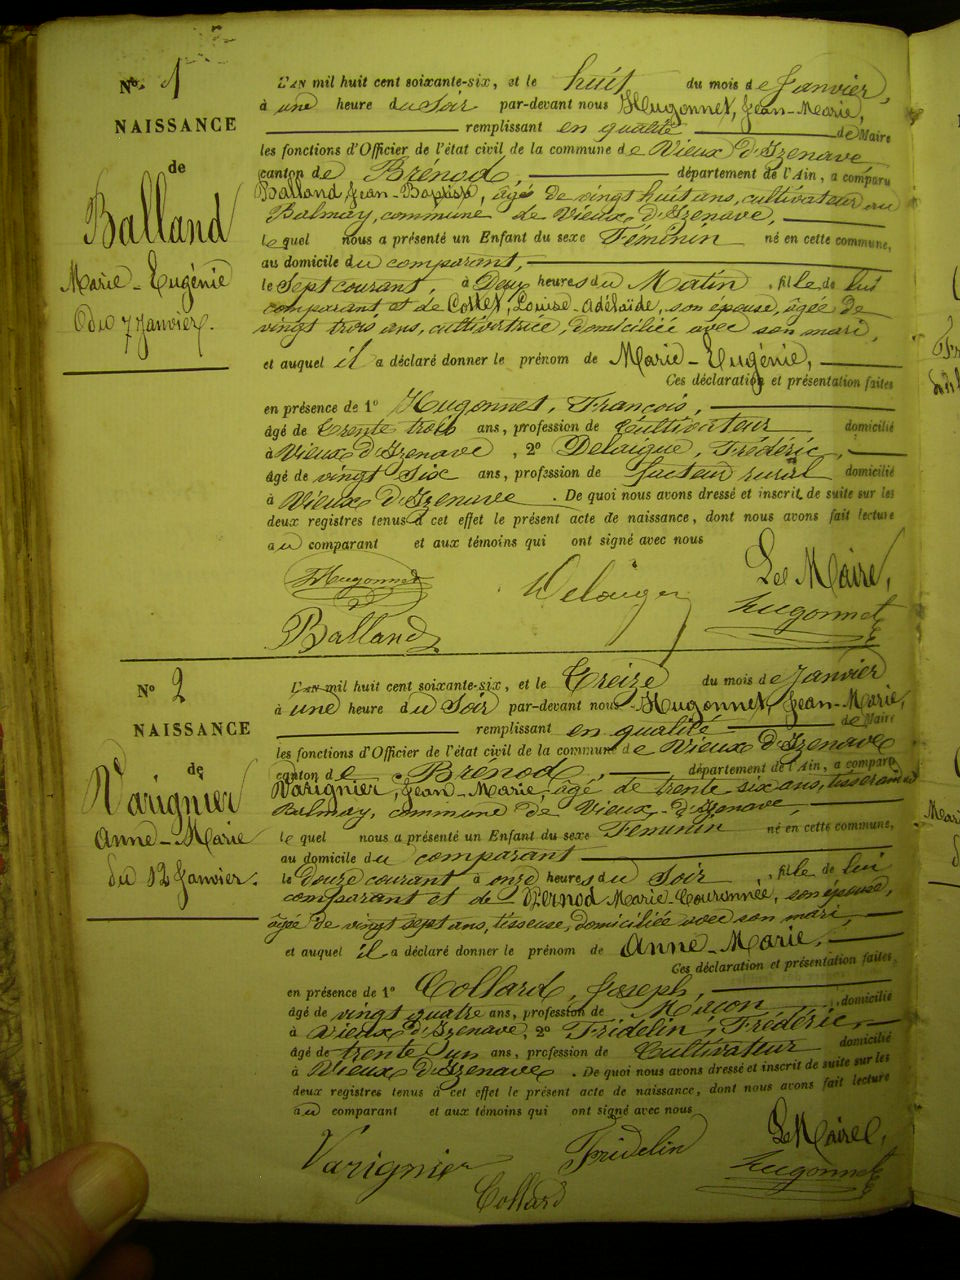 N° 1
NAISSANCE
de
Balland
Marie-Eugénie
du 7 Janvier.
L'AN mil huit cent soixante-six, et le huit du mois de Janvier,
à une heure du Soir par-devant nous Hugonnet, Jean-Marie,
remplissant en qualité de Maire
les fonctions d'Officier de l'état civil de la commune de Vieux d'Izenave
canton de Brénod, département de l'Ain, a comparu
Balland Jean-Baptiste, âgé de vingt huit ans, cultivateur au
Balmay, commune de Vieux d'Izenave,
lequel nous a présenté un Enfant du sexe Féminin né en cette commune,
au domicile du comparant,
le Sept courant, à Deux heures du Matin, fille de lui
comparant et de Cottet, Louise-Adélaïde, son épouse, âgée de
vingt trois ans, cultivatrice, domiciliée avec son mari,
et auquel il a déclaré donner le prénom de Marie-Eugénie,
Ces déclaration et présentation faites
en présence de 1° Hugonnet, François,
âgé de Trente trois ans, profession de Cultivateur domicilié
à Vieux d'Izenave, 2° Delaigue, Frédéric,
âgé de vingt Six ans, profession de facteur rural domicilié
à Vieux d'Izenave. De quoi nous avons dressé et inscrit de suite sur les
deux registres tenus à cet effet le présent acte de naissance, dont nous avons fait lecture
au comparant et aux témoins qui ont signé avec nous
Hugonnet Delaigue Le Maire,
Balland Hugonnet
N° 2
NAISSANCE
de
Varignier
Anne-Marie
du 12 Janvier.
L'AN mil huit cent soixante-six, et le Treize du mois de Janvier
à une heure du Soir par-devant nous Hugonnet, Jean-Marie,
remplissant en qualité de Maire
les fonctions d'Officier de l'état civil de la commune de Vieux d'Izenave
canton de Brénod, département de l'Ain, a comparu
Varignier, Jean-Marie, âgé de trente six ans, tisserand
Balmay, commune de Vieux-d'Izenave
lequel nous a présenté un Enfant du sexe Féminin né en cette commune,
au domicile du comparant
le douze courant à onze heures du Soir, fille de lui
comparant et de Marie-Couronnée, son épouse,
âgée de vingt sept ans, tisseuse, domiciliée avec son mari,
et auquel il a déclaré donner le prénom de Anne-Marie,
Ces déclaration et présentation faites,
en présence de 1° Collard, Joseph,
âgé de vingt quatre ans, profession de Maçon, domicilié
à Vieux d'Izenave, 2° Fridelin, Frédéric,
âgé de trente un ans, profession de Cultivateur domicilié
à Vieux d'Izenave. De quoi nous avons dressé et inscrit de suite sur les
deux registres tenus à cet effet le présent acte de naissance, dont nous avons fait lecture
au comparant et aux témoins qui ont signé avec nous
Varignier Fridelin Le Maire,
Collard Hugonnet